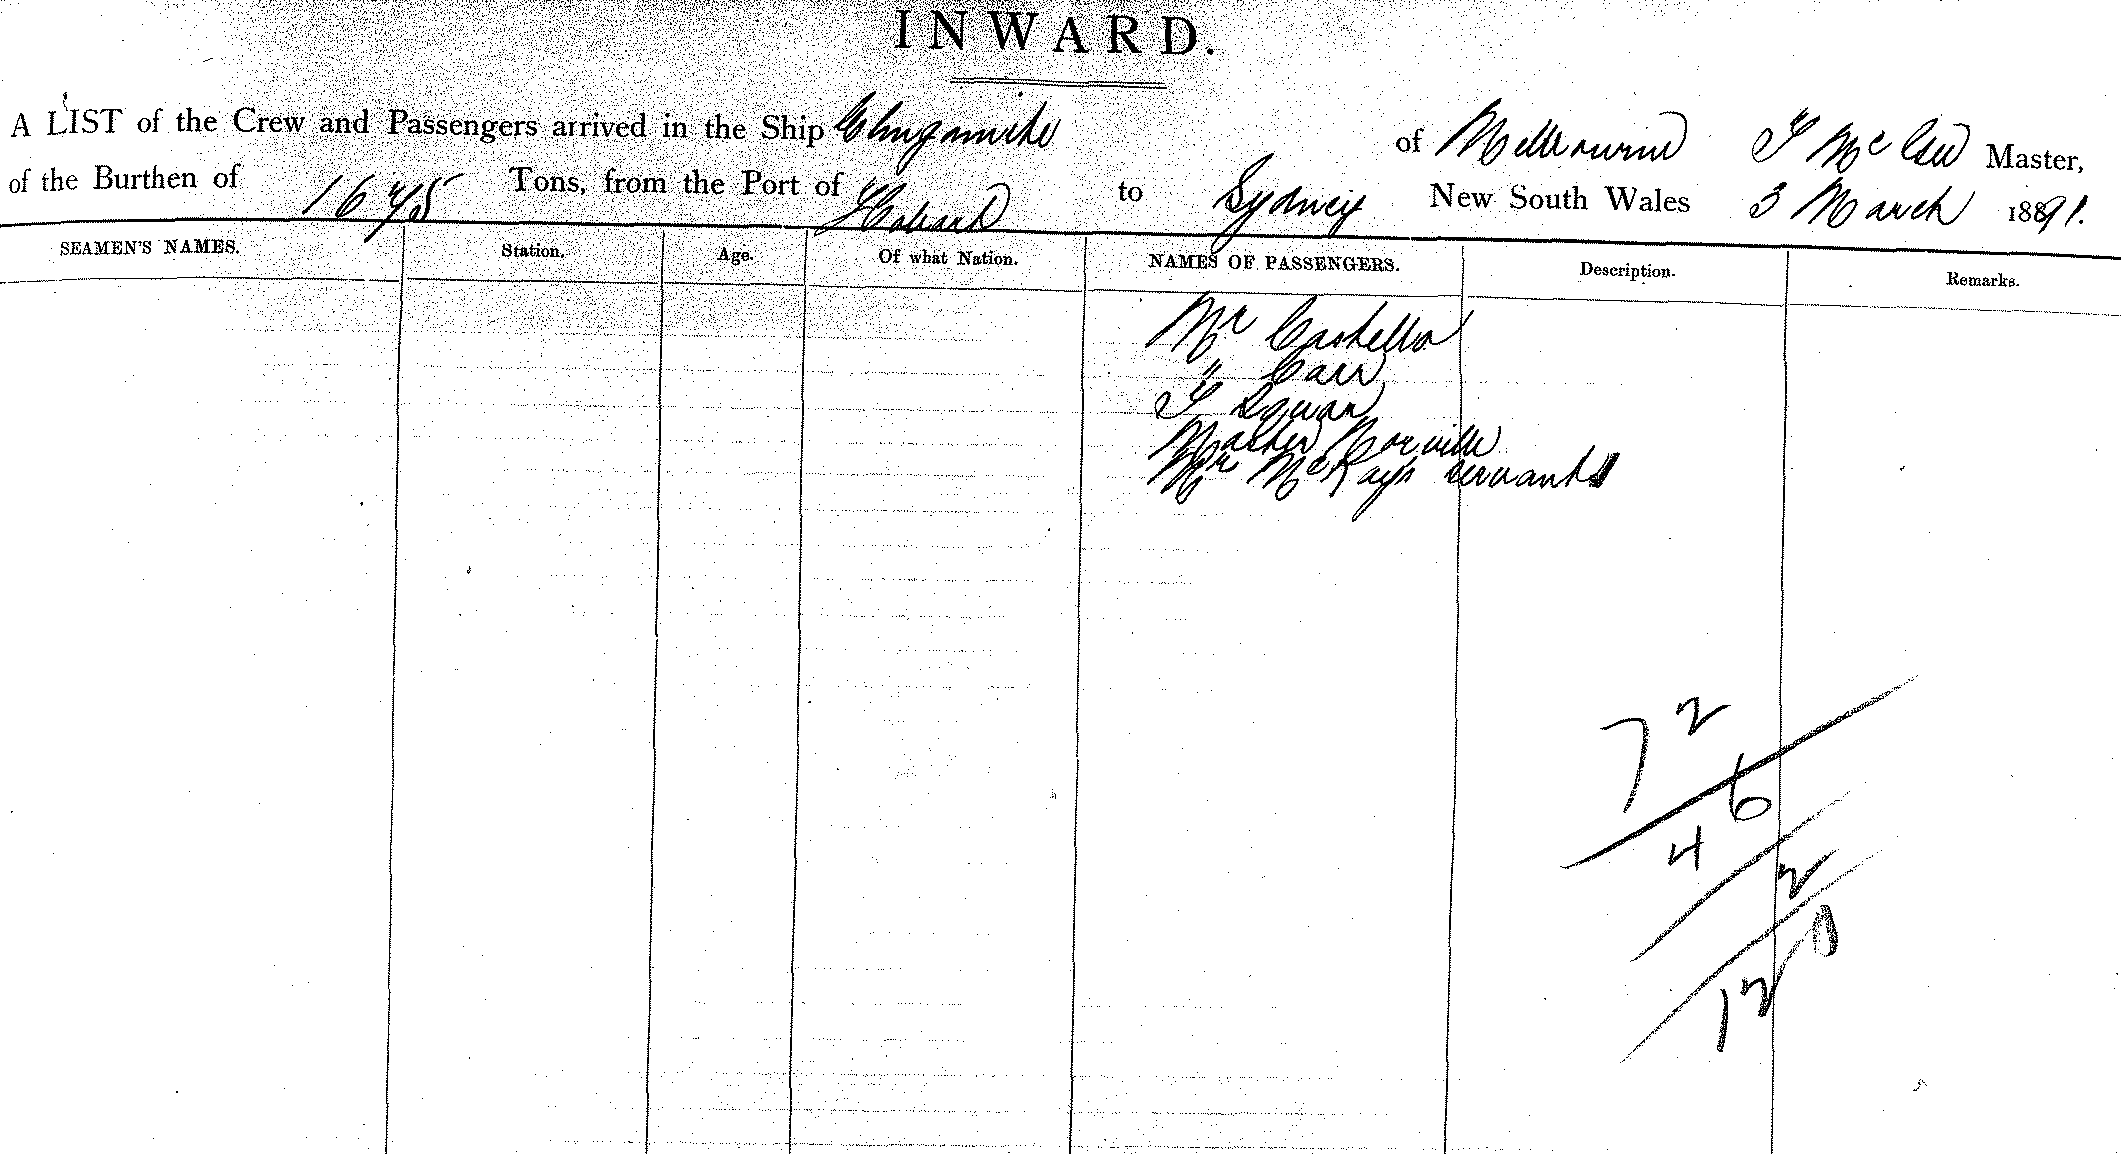 INWARD.
A LIST of the Crew and Passengers arrived in the Ship Elingamite of Melbourne Master,
of the Burthen of 1675 Tons, from the Port of Hobart to Sydney New South Wales 3 March 1891.
SEAMEN'S NAMES. Station. Age. Of what Nation. NAMES OF PASSENGERS. Description. Remarks.
Mr Castella
" Carr
Master Norville
Mr McKays servant
72
6
4
2
12